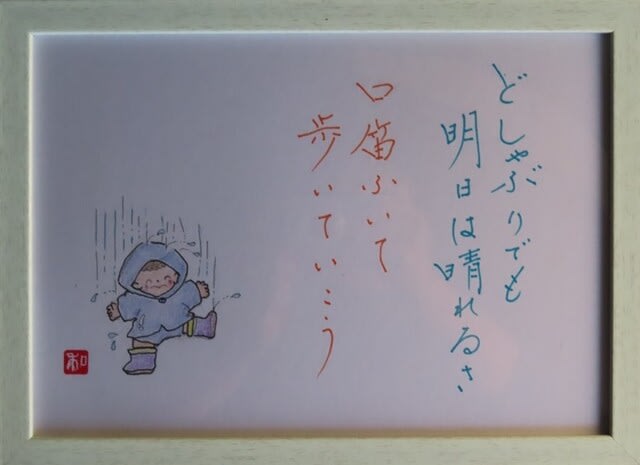 どしゃぶりでも
明日は晴れるさ
口笛ふいて
歩いていこう
和